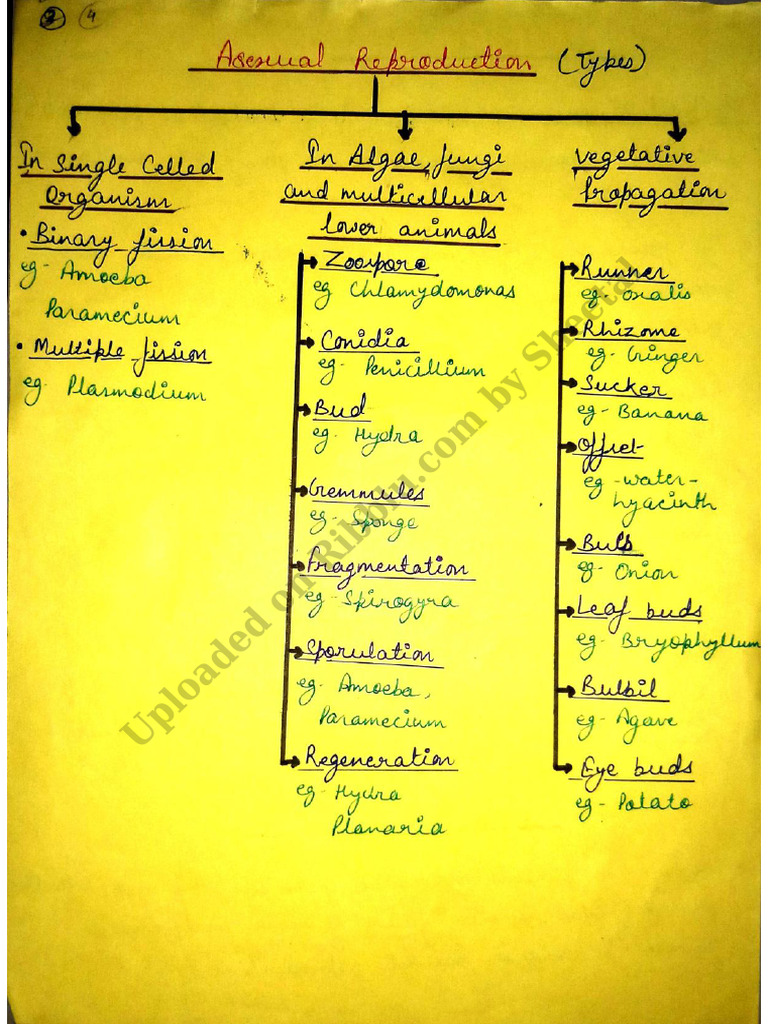 2 4
Asexual Reproduction (Types)
In Single Celled
Organism
• Binary fission
eg - Amoeba
Paramecium
• Multiple fission
eg. Plasmodium
In Algae, fungi
and multicellular
lower animals
Zoospore
eg Chlamydomonas
Conidia
eg - Penicillium
Bud
eg. Hydra
Gemmules
eg - Sponge
Fragmentation
eg - Spirogyra
Sporulation
eg. Amoeba,
Paramecium
Regeneration
eg - Hydra
Planaria
vegetative
Propagation
Runner
eg. Oxalis
Rhizome
eg - Ginger
Sucker
eg - Banana
Offset
eg - water-
hyacinth
Bulb
eg - Onion
Leaf buds
eg - Bryophyllum
Bulbil
eg - Agave
Eye buds
eg - Potato
Uploaded on Ribblu.com by Sheetal